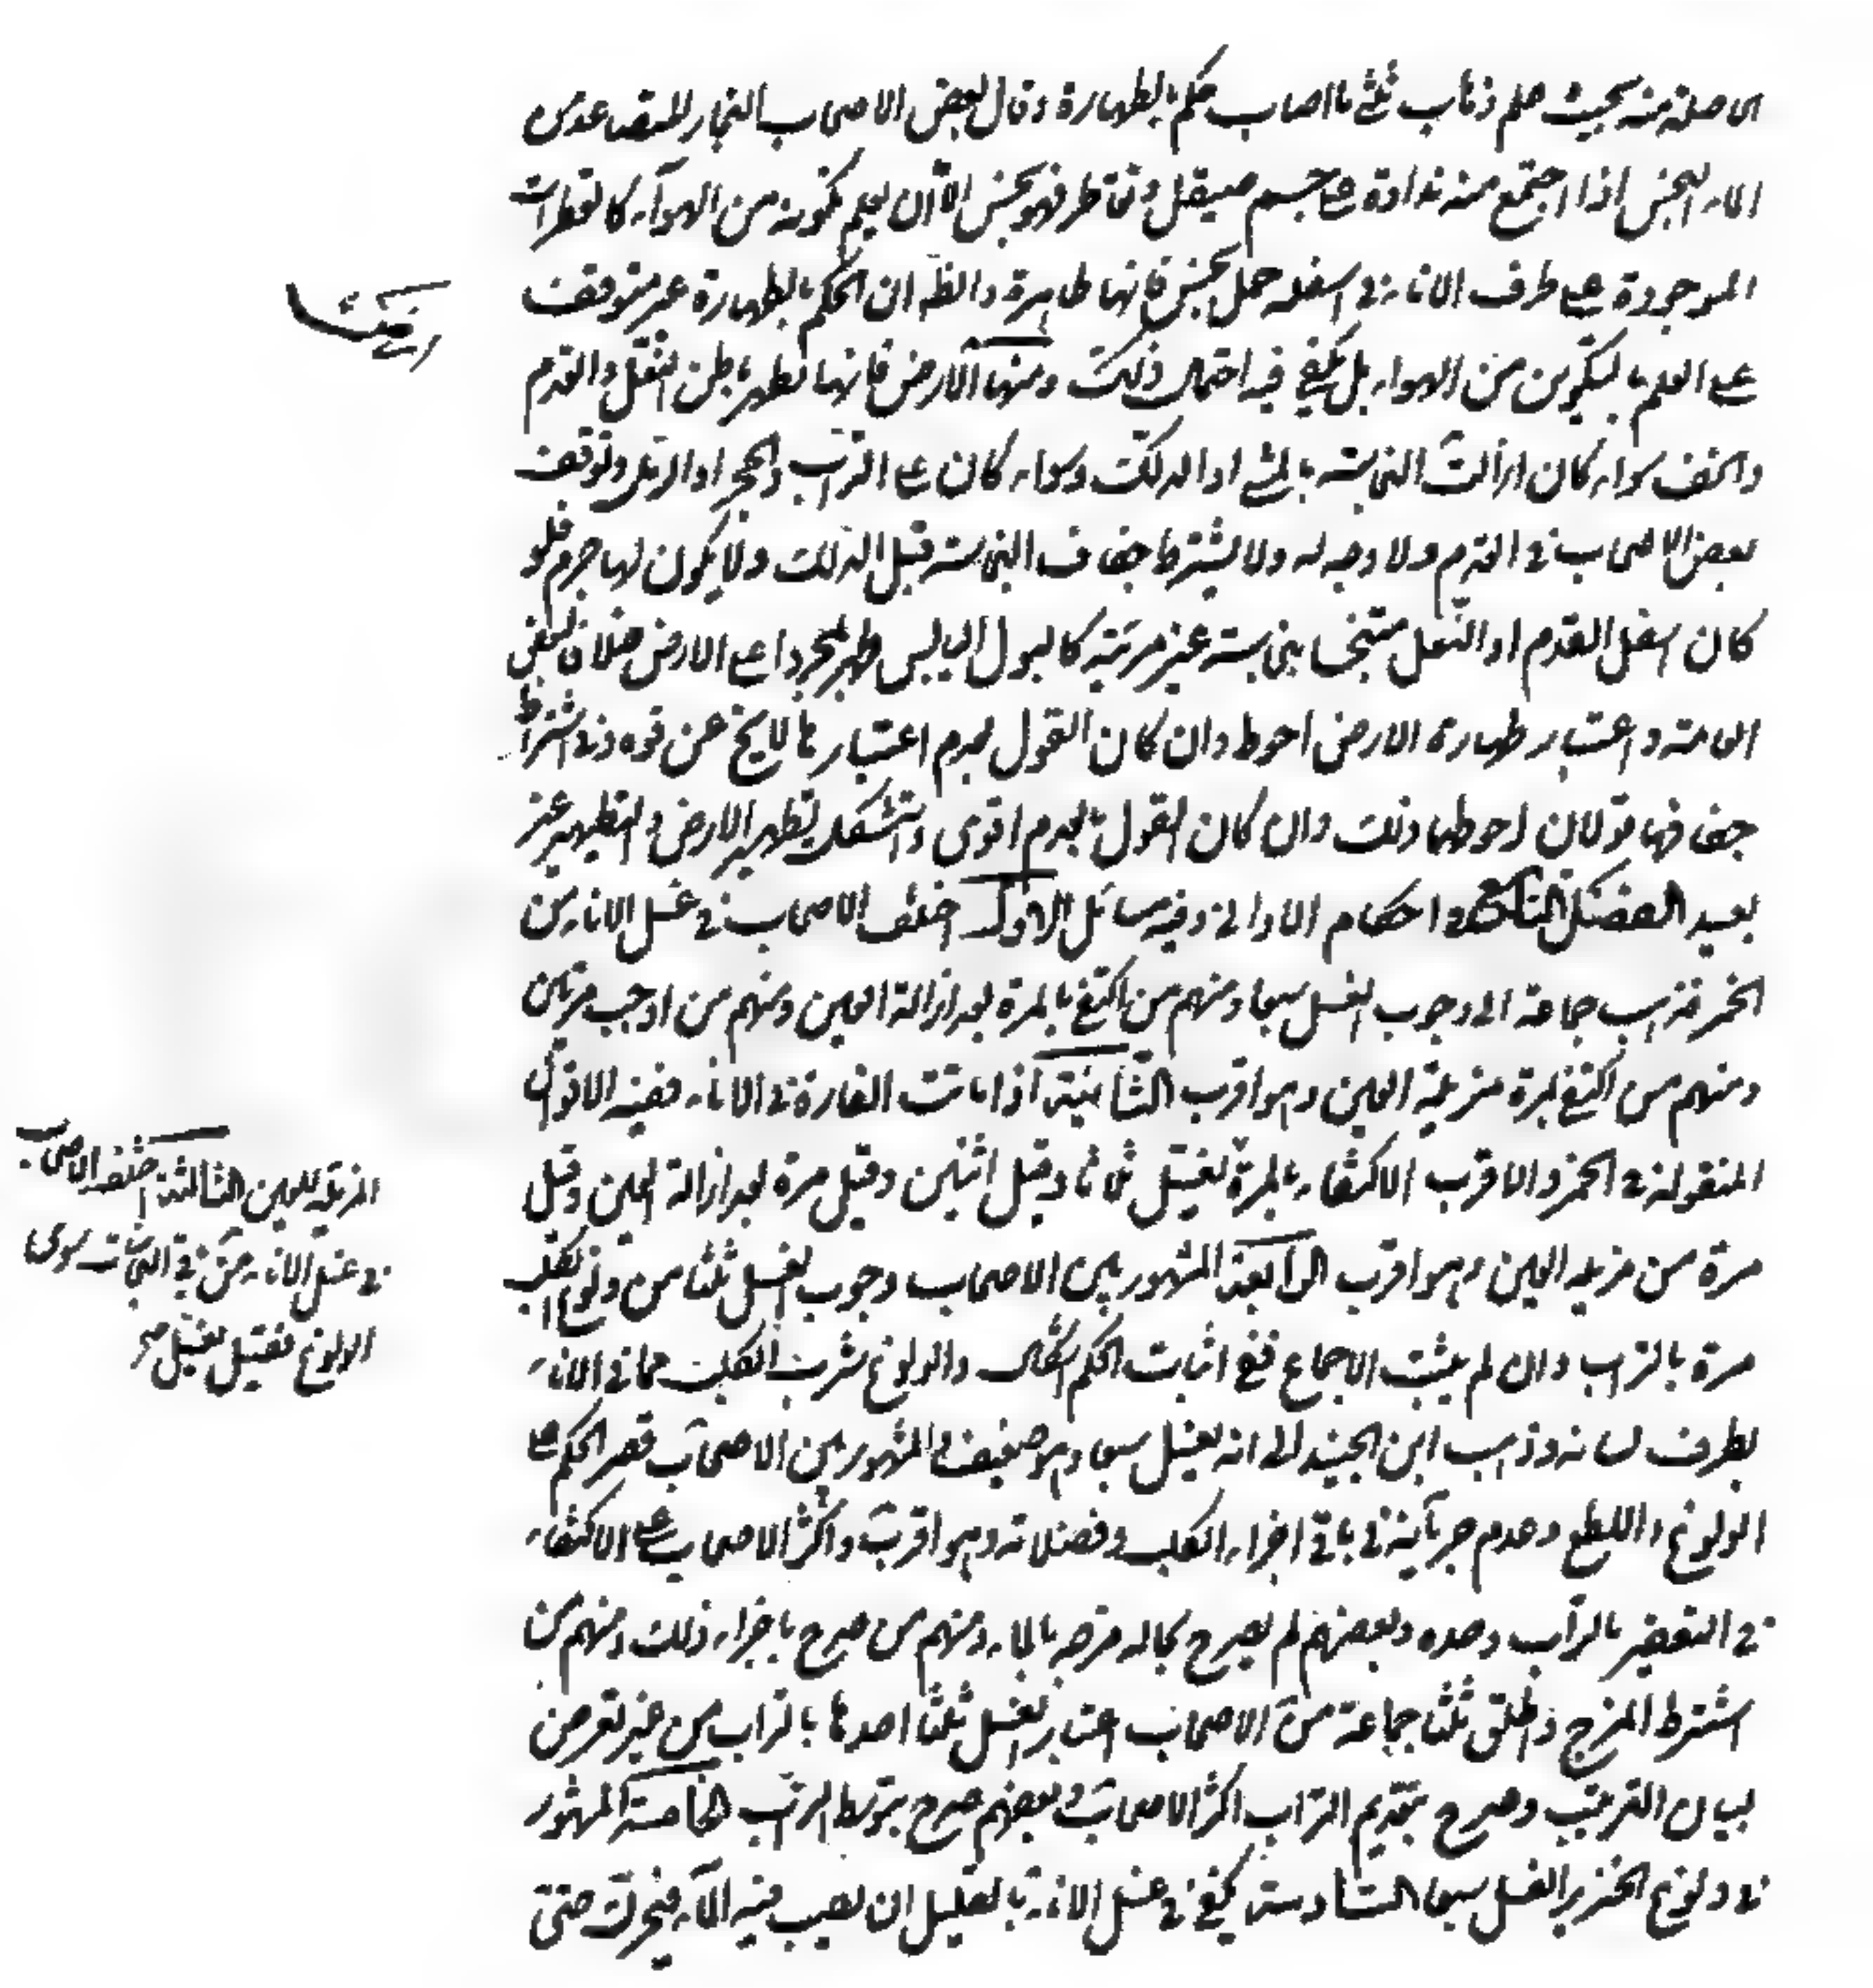 الحاصلة منه بحيث علم ذهاب شئ مما اصاب حكم بالطهارة وقال بعض الاصحاب البخار المتصاعد من
الماء النجس اذا اجتمع منه نداوة على جسم صيقل وتقاطر فهو نجس الا ان يعلم تكونه من الهواء كالقطرات
الموجودة على طرف الاناء في اسفله حمل نجس فانها طاهرة والظ ان الحكم بالطهارة غير متوقف
على العلم بالتكون من الهواء بل يكفي فيه احتمال ذلك ومنها الارض فانها تطهر باطن النعل والقدم
والخف سواء كان ازالت النجاسة بالمشي او الدلك وسواء كان على التراب والحجر او الرمل وتوقف
بعض الاصحاب في القدم ولا وجه له ولا يشترط جفاف النجاسة قبل الدلك ولا يكون لها جرم فلو
كان اسفل القدم او النعل متنجسا بنجاسة غير مرئية كالبول اليابس طهر بمجرد على الارض خلافا لبعض
العامة واعتبار طهارة الارض احوط وان كان القول بعدم اعتبارها لا يخ عن قوه وفي اشتراط
جفافها قولان احوطها ذلك وان كان القول بالعدم اقوى واستشكل تطهير الارض والتطهير غير
بعيد الفصل التاسع في احكام الاواني وفيه مسائل الاولى اختلف الاصحاب في غسل الاناء من
الخمر فذهب جماعة الى وجوب الغسل سبعا ومنهم من اكتفى بالمرة بعد ازالة العين ومنهم من اوجب مرتين
ومنهم من اكتفى بمرة مزيلة العين وهو اقرب الثانية اذا ماتت الفارة في الاناء ففيه الاقوال
المنقولة في الخمر والاقرب الاكتفاء بالمرة يغتسل ثلاثا وقيل اثنين وقيل مرة بعد ازالة العين وقيل
مرة من مزيله العين وهو اقرب الرابعة المشهور بين الاصحاب وجوب الغسل ثلثا من ولوغ الكلب
مرة بالتراب وان لم يثبت الاجماع ففي اثبات الحكم اشكال والولوغ شرب الكلب مما في الاناء
بطرف لسانه وذهب ابن الجنيد الى انه يغسل سبعا وهو ضعيف والمشهور بين الاصحاب قصر الحكم على
الولوغ واللطع وعدم جريانه في باقي اجزاء الكلب وفضلاته وهو اقرب واكثر الاصحاب على الاكتفاء
في التعفير بالتراب وحده وبعضهم لم يصرح بحاله مزجه بالماء ومنهم من صرح باجزاء ذلك ومنهم من
اشترط المزج واطلق ثلثا جماعة من الاصحاب اعتبار الغسل ثلثا احدها بالتراب من غير تعرض
لبيان الترتيب وصرح بتقديم التراب اكثر الاصحاب وبعضهم صرح بتوسط التراب الخامسة المشهور
في ولوغ الخنزير الغسل سبعا السادسة يكفي في غسل الاناء بالقليل ان يصب فيه الماء فيحرك حتى
المزيلة للعين الثالثة اختلف الاصحاب
في غسل الاناء من باقي النجاسات سوى
الولوغ فقيل يغسل